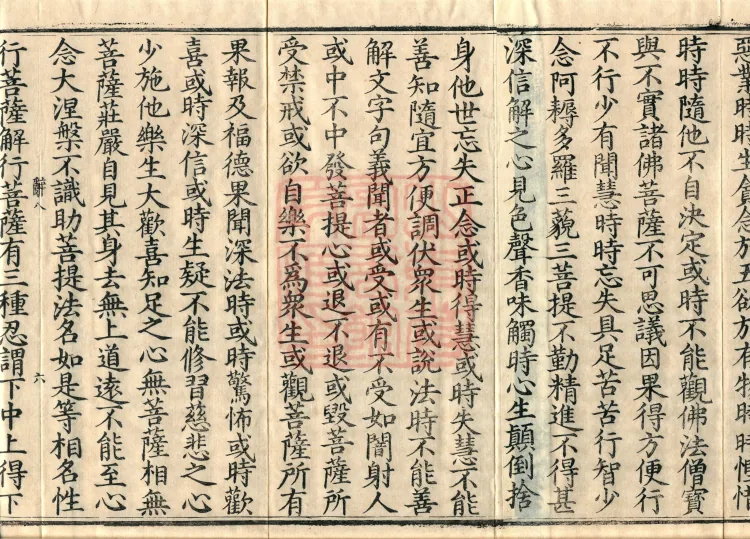 惡業時時生貪念於五欲亦有物時時慳惜
時時隨他不自決定或時不能觀佛法僧寶
與不實諸佛菩薩不可思議因果得方便行
不行少有聞慧時時忘失具足苦苦行智少
念阿耨多羅三藐三菩提不勤精進不得甚
深信解之心見色聲香味觸時心生顛倒捨
身他世忘失正念或時得慧或時失慧不能
善知隨宜方便調伏衆生或說法時不能善
解文字句義聞者或受或有不受如闇射人
或中不中發菩提心或退不退或毀菩薩所
受禁戒或欲自樂不爲衆生或觀菩薩所有
果報及福德果聞深法時或時驚怖或時歡
喜或時深信或時生疑不能修習慈悲之心
少施他樂生大歡喜知足之心無菩薩相無
菩薩莊嚴自見其身去無上道遠不能至心
念大涅槃不識助菩提法名如是等相名性
辭八 六
行菩薩解行菩薩有三種忍謂下中上得下